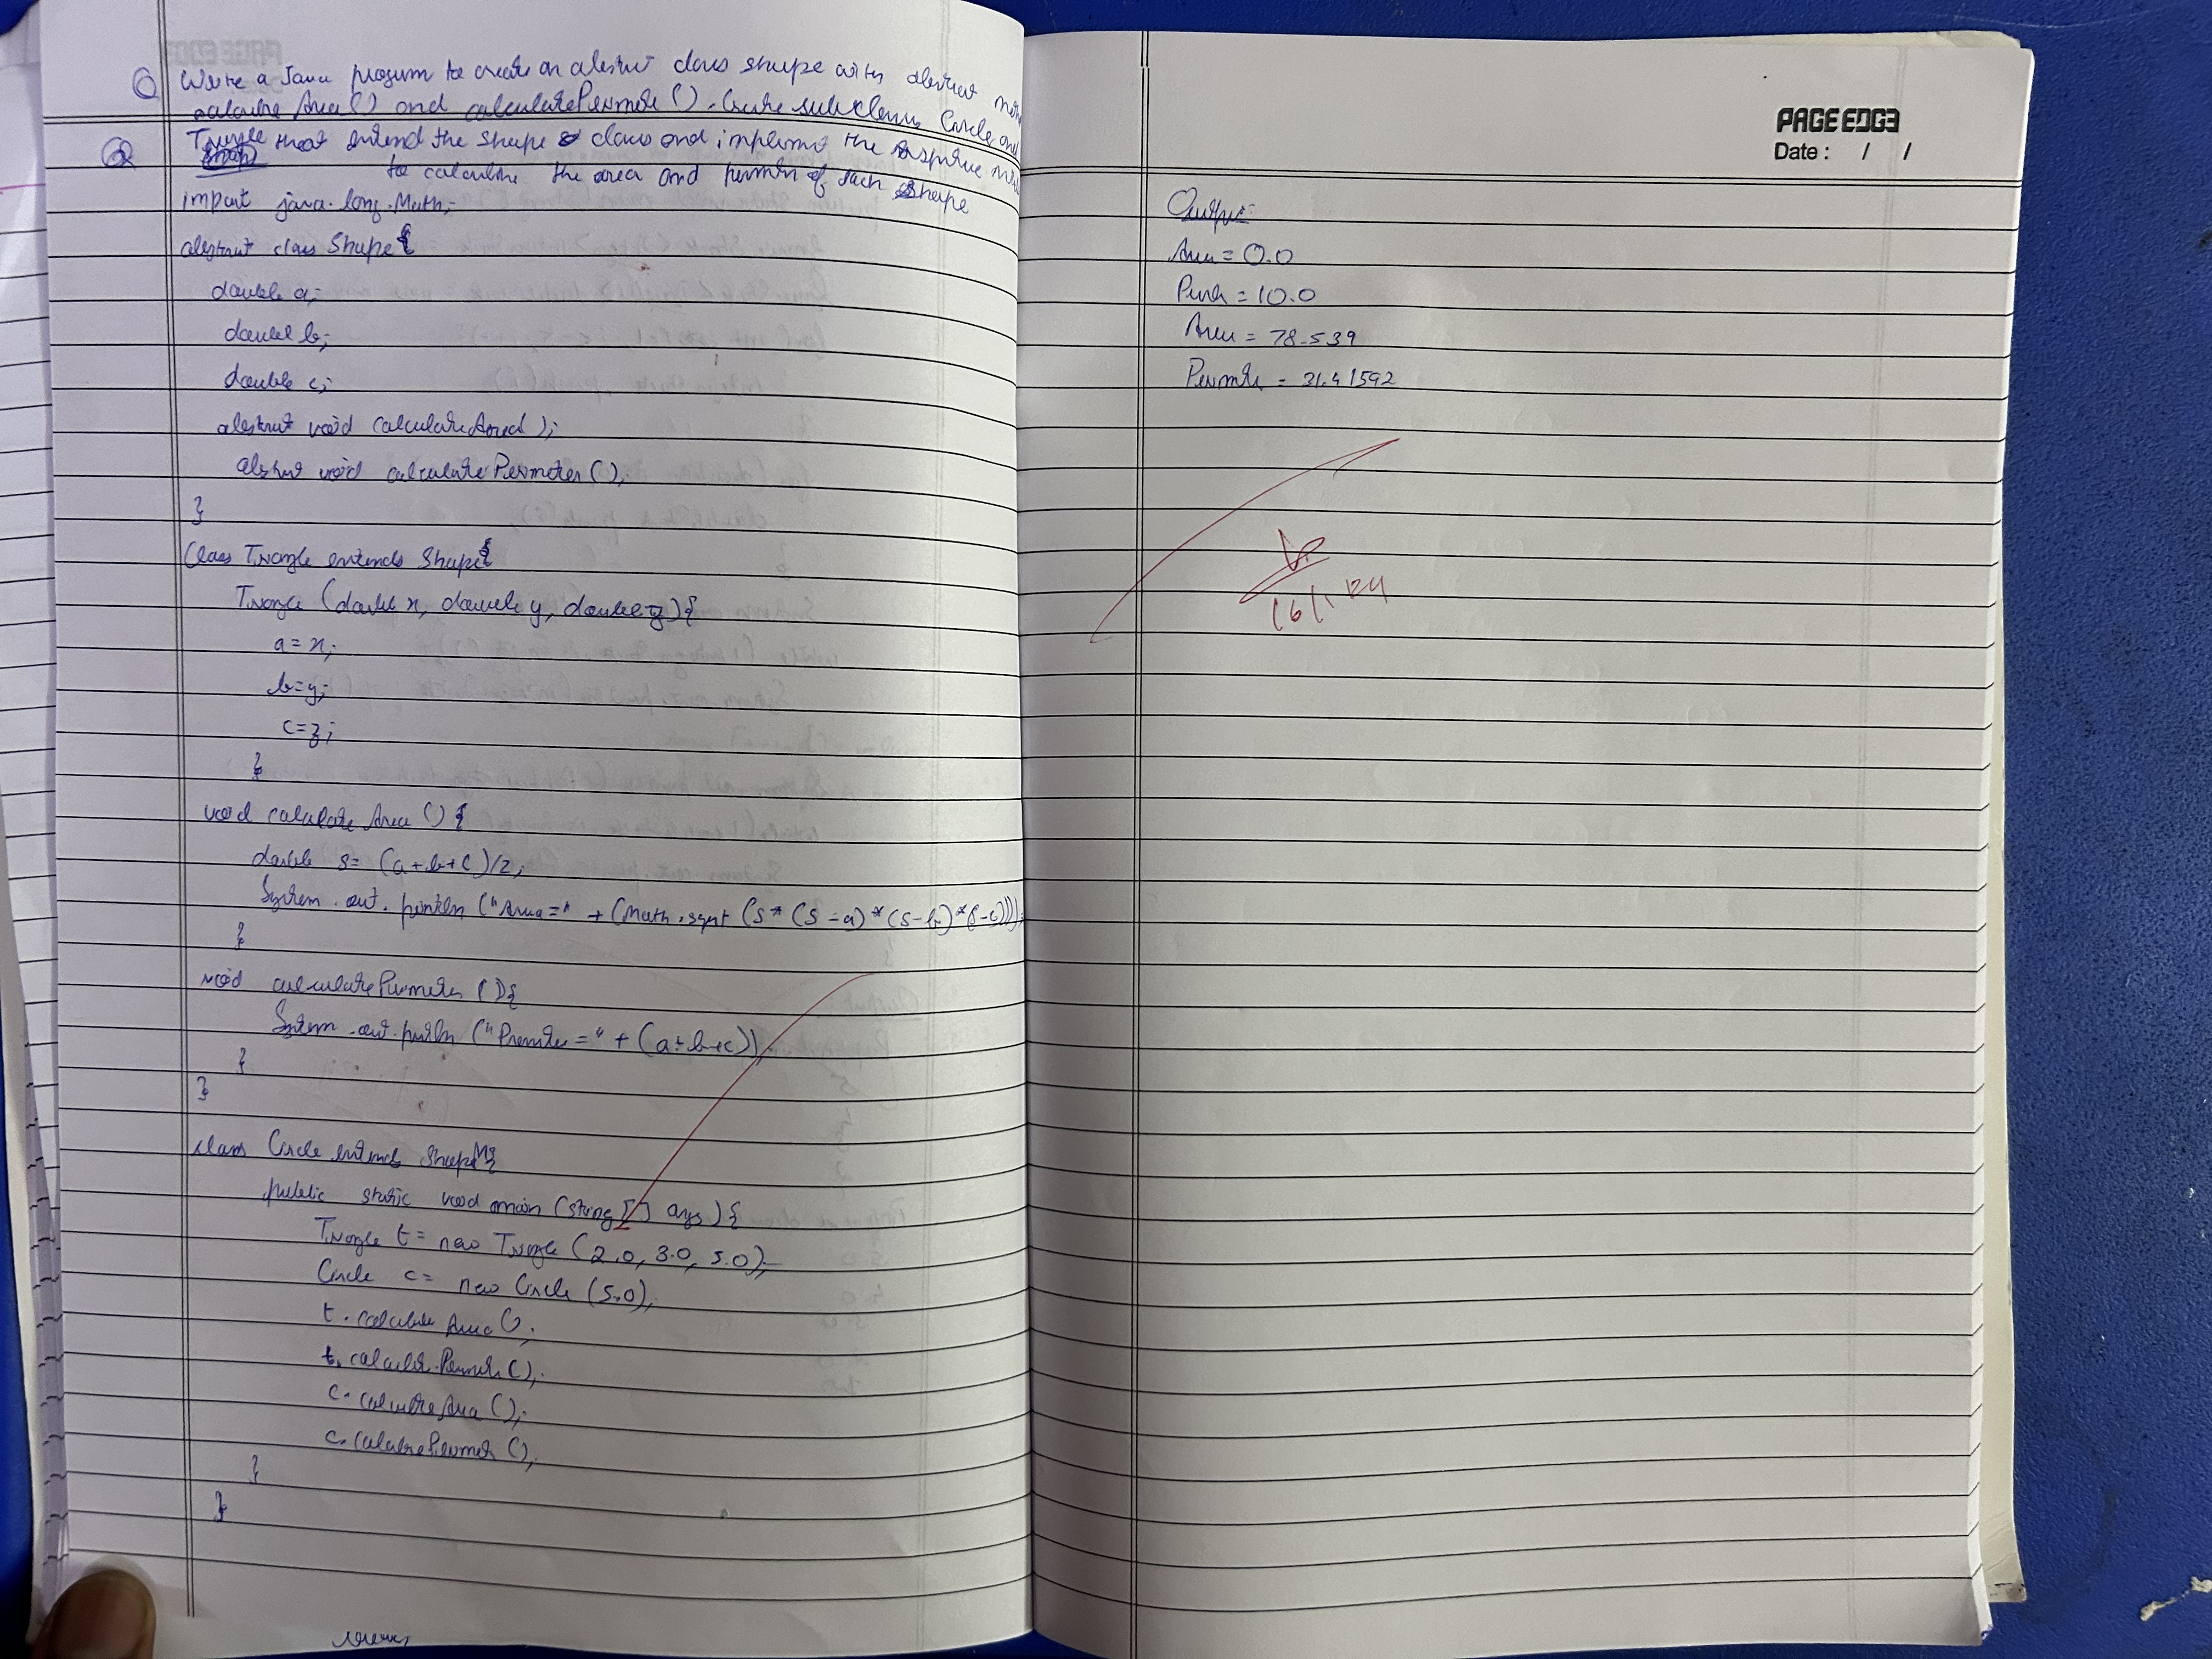 Q Write a Java program to create an abstract class shape with abstract
calculate Area () and calculate Perimeter (). Create subclasses Circle and
Q Triangle that extend the shape class and implement the respective
to calculate the area and perimeter of each shape
import java.lang.Math;
abstract class Shape {
double a;
double b;
double c;
abstract void calculateArea();
abstract void calculatePerimeter();
}
Class Triangle extends Shape {
Triangle (double x, double y, double z) {
a = x;
b = y;
c = z;
}
void calculate Area () {
double s = (a+b+c)/2;
System.out.println ("Area=" + (Math.sqrt (s*(s-a)*(s-b)*(s-c)));
}
void calculatePerimeter () {
System.out.println ("Perimeter=" + (a+b+c));
}
}
class Circle extends Shape {
public static void main (String [] args) {
Triangle t = new Triangle (2.0, 3.0, 5.0);
Circle c = new Circle (5.0);
t.calculate Area ();
t.calculate Perimeter ();
c.calculate Area ();
c.calculate Perimeter ();
}
}
PAGE EDGE
Date: / /
Output:
Area = 0.0
= 10.0
Area = 78.539
Perimeter = 31.41592